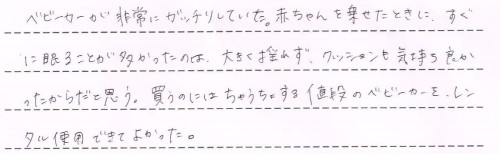 ベビーカーが非常にガッチリしていた。赤ちゃんを乗せたときに、すぐ
に眠ることが多かったのは、大きく揺れず、クッションも気持ち良か
ったからだと思う。買うのにはちゅうちょする値段のベビーカーを、レン
タル使用できてよかった。